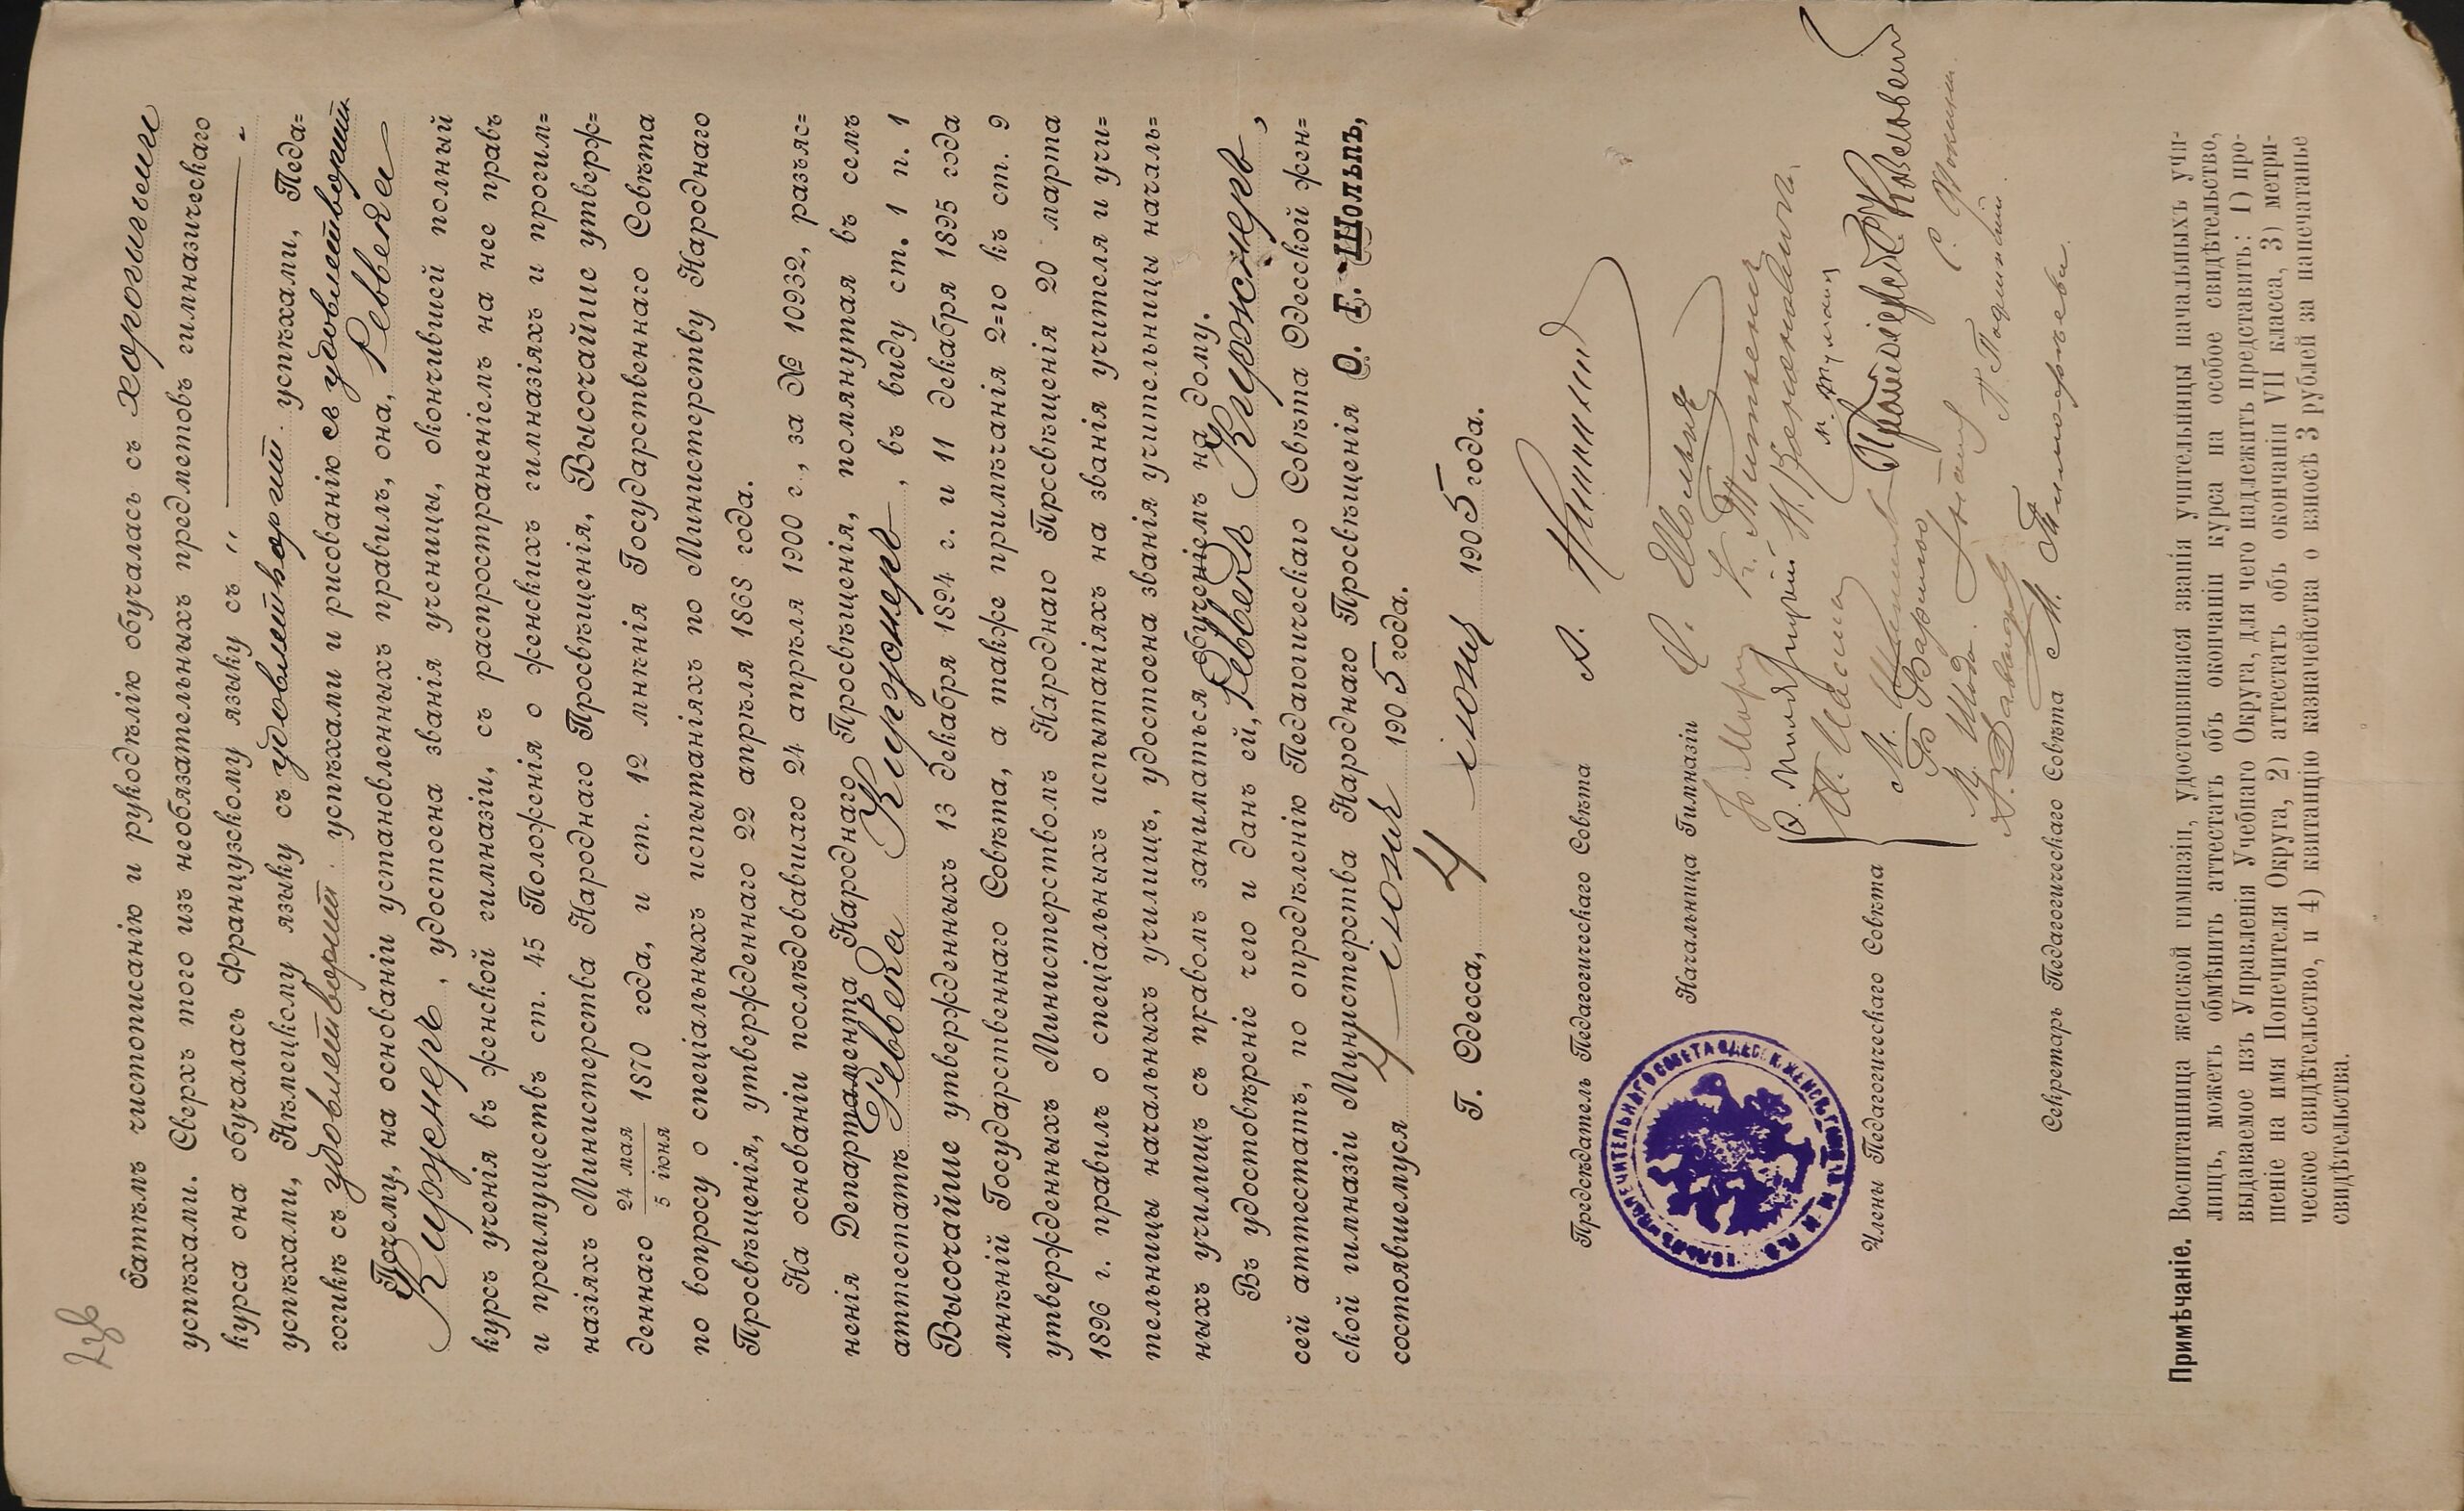 Затѣмъ чистописанію и рукодѣлію обучалась съ хорошими
успѣхами. Сверхъ того изъ необязательныхъ предметовъ гимназическаго
курса она обучалась Французскому языку съ „ ——— "
успѣхами, Нѣмецкому языку съ удовлетворит. успѣхами, Педа=
гогикѣ съ удовлетворит. успѣхами и рисованію съ удовлетворит.
Почему, на основаніи установленныхъ правилъ, она, Реввека
Киржнеръ, удостоена званія ученицы, окончившей полный
курсъ ученія въ женской гимназіи, съ распространеніемъ на нее правъ
и преимуществъ ст. 45 Положенія о женскихъ гимназіяхъ и прогим=
назіяхъ Министерства Народнаго Просвѣщенія, Высочайше утверж=
деннаго 24 мая / 5 іюня 1870 года, и ст. 12 мнѣнія Государственнаго Совѣта
по вопросу о спеціальныхъ испытаніяхъ по Министерству Народнаго
Просвѣщенія, утвержденнаго 22 апрѣля 1868 года.
На основаніи послѣдовавшаго 24 апрѣля 1900 г., за № 10932, разъяс=
ненія Департамента Народнаго Просвѣщенія, помянутая въ семъ
аттестатѣ Реввека Киржнеръ, въ виду ст. 1 п. 1
Высочайше утвержденныхъ 13 декабря 1894 г. и 11 декабря 1895 года
мнѣній Государственнаго Совѣта, а также примѣчанія 2=го къ ст. 9
утвержденныхъ Министерствомъ Народнаго Просвѣщенія 20 марта
1896 г. правилъ о спеціальныхъ испытаніяхъ на званія учителя и учи=
тельницы начальныхъ училищъ, удостоена званія учительницы началь=
ныхъ училищъ съ правомъ заниматься обученіемъ на дому.
Въ удостовѣреніе чего и данъ ей, Реввекѣ Киржнеръ,
сей аттестатъ, по опредѣленію Педагогическаго Совѣта Одесской жен=
ской гимназіи Министерства Народнаго Просвѣщенія О. Г. Шольпъ,
состоявшемуся 4 іюня 1905 года.
Г. Одесса, 4 іюня 1905 года.
Предсѣдатель Педагогическаго Совѣта А.
Начальница Гимназіи О. Шольпъ
Члены Педагогическаго Совѣта
Секретарь Педагогическаго Совѣта М. Тимофѣевъ.
Примѣчаніе. Воспитанница женской гимназіи, удостоившаяся званія учительницы начальныхъ учи-
лищъ, можетъ обмѣнить аттестатъ объ окончаніи курса на особое свидѣтельство,
выдаваемое изъ Управленія Учебнаго Округа, для чего надлежитъ представить: 1) про-
шеніе на имя Попечителя Округа, 2) аттестатъ объ окончаніи VII класса, 3) метри-
ческое свидѣтельство, и 4) квитанцію казначейства о взносѣ 3 рублей за напечатаніе
свидѣтельства.